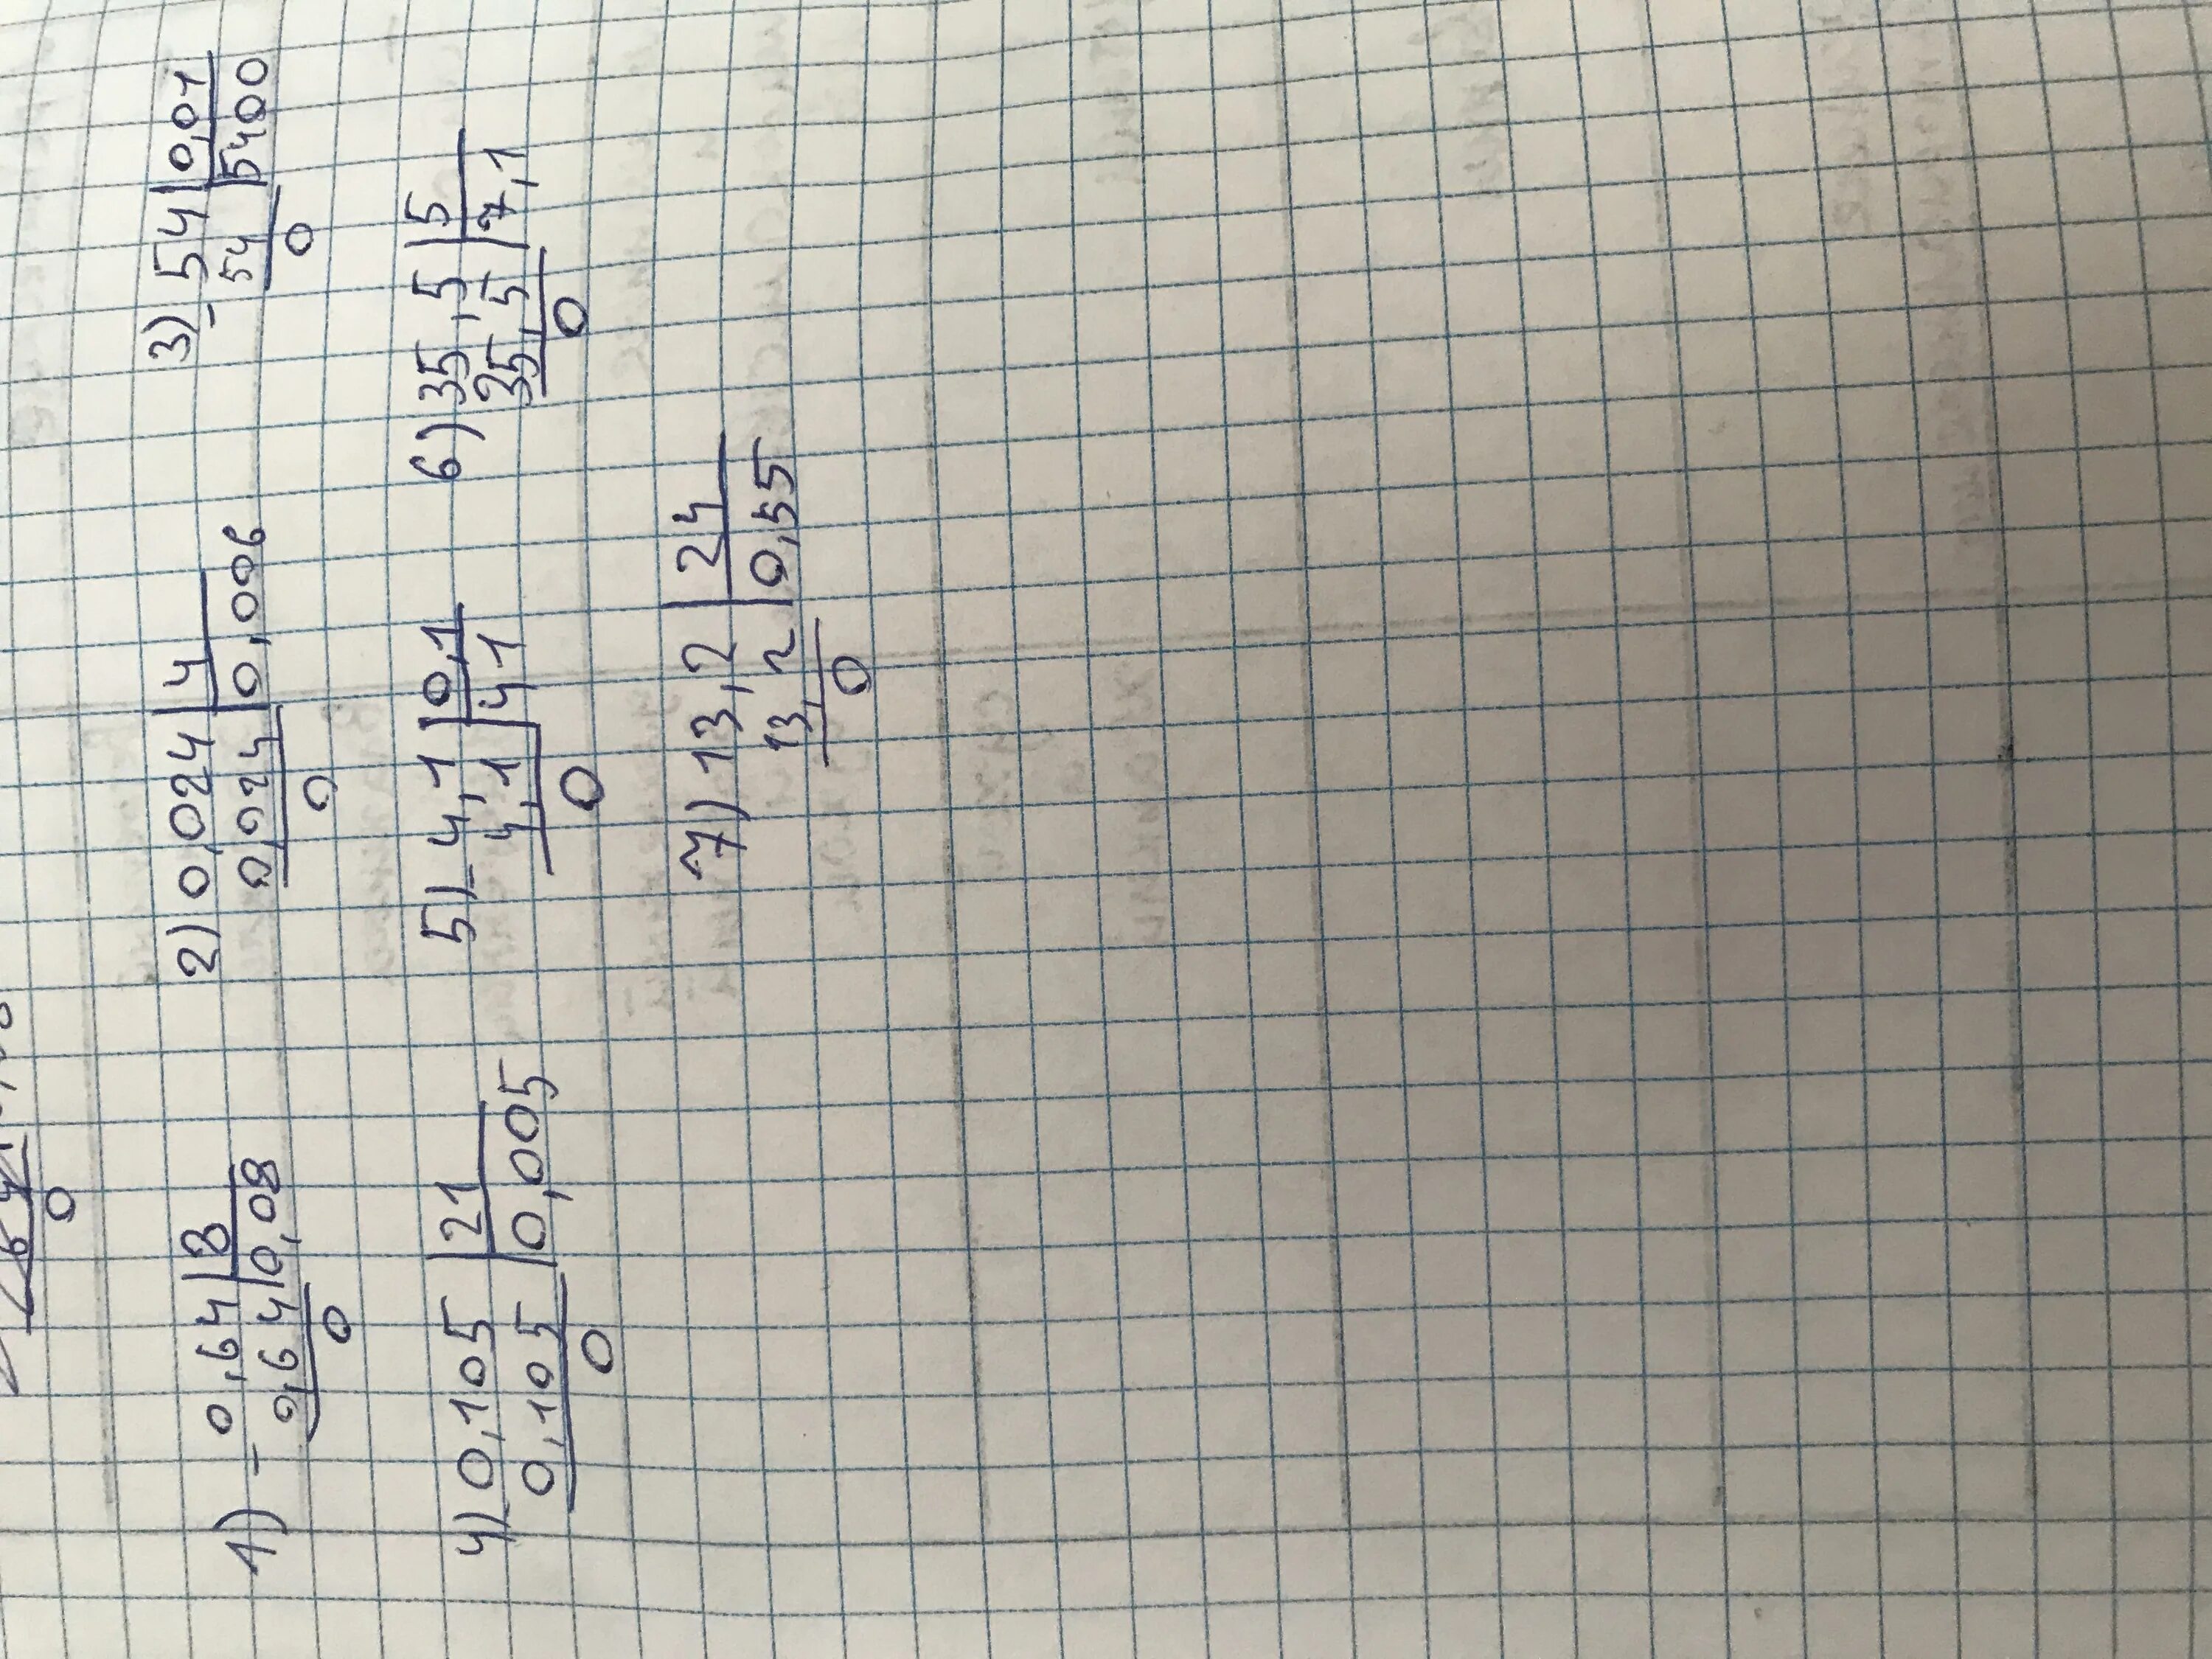 0
1) - 0,64 | 8 2) 0,024 | 4 3) - 54 | 0,01
0,64 | 0,08 0,024 | 0,006 54 | 5400
0 0 0
4) 0,105 | 21 5) - 4,1 | 0,1 6) 35,5 | 5
0,105 | 0,005 4,1 | 41 35,5 | 7,1
0 0 0
7) 13,2 | 24
13,2 | 0,55
0